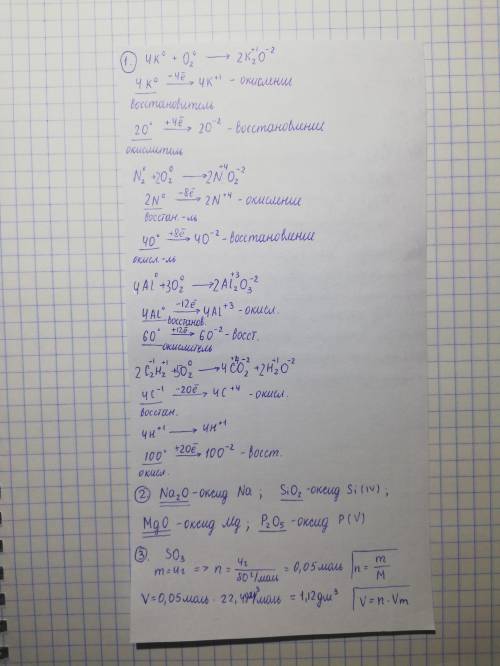 1. 4K⁰ + O₂⁰ → 2K₂⁺¹O⁻²
4K⁰ -4ē→ 4K⁺¹ - окисление
восстановитель
2O⁰ +4ē→ 2O⁻² - восстановление
окислитель
N₂⁰ + 2O₂⁰ → 2N⁺⁴O₂⁻²
2N⁰ -8ē→ 2N⁺⁴ - окисление
восстан.-ль
4O⁰ +8ē→ 4O⁻² - восстановление
окисл.-ль
4Al⁰ + 3O₂⁰ → 2Al₂⁺³O₃⁻²
4Al⁰ -12ē→ 4Al⁺³ - окисл.
восстанов.
6O⁰ +12ē→ 6O⁻² - восст.
окислитель
2C₂⁻¹H₂⁺¹ + 5O₂⁰ → 4C⁺⁴O₂⁻² + 2H₂⁺¹O⁻²
4C⁻¹ -20ē→ 4C⁺⁴ - окисл.
восстан.
4H⁺¹ → 4H⁺¹
10O⁰ +20ē→ 10O⁻² - восст.
окисл.
2. Na₂O - оксид Na ; SiO₂ - оксид Si(IV) ;
MgO - оксид Mg ; P₂O₅ - оксид P(V)
3. SO₃
m = 4г => n = 4г / 80 г/моль = 0,05 моль n = m/M
V = 0,05 моль · 22,4 дм³/моль = 1,12 дм³ V = n · Vm